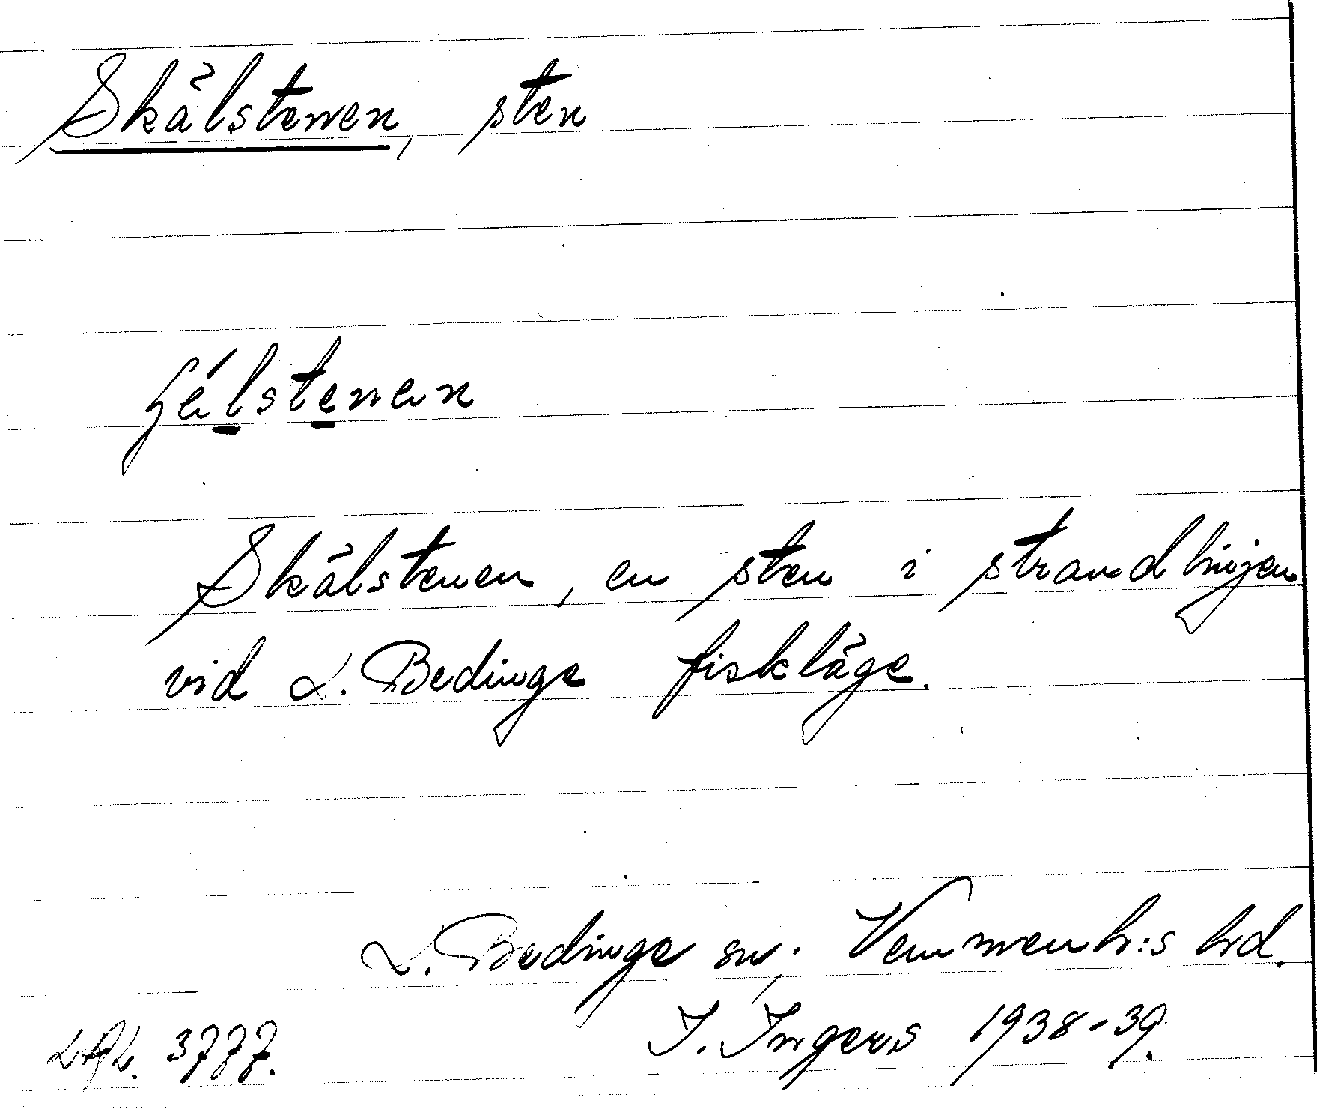 Skälstenen, sten
Skälstenen, en sten i strandlinjen
vid L. Bedinge fiskläge.
L. Bedinge sn; Vemmenh:s hd.
I. Ingers 1938-39.
LAL. 3777.